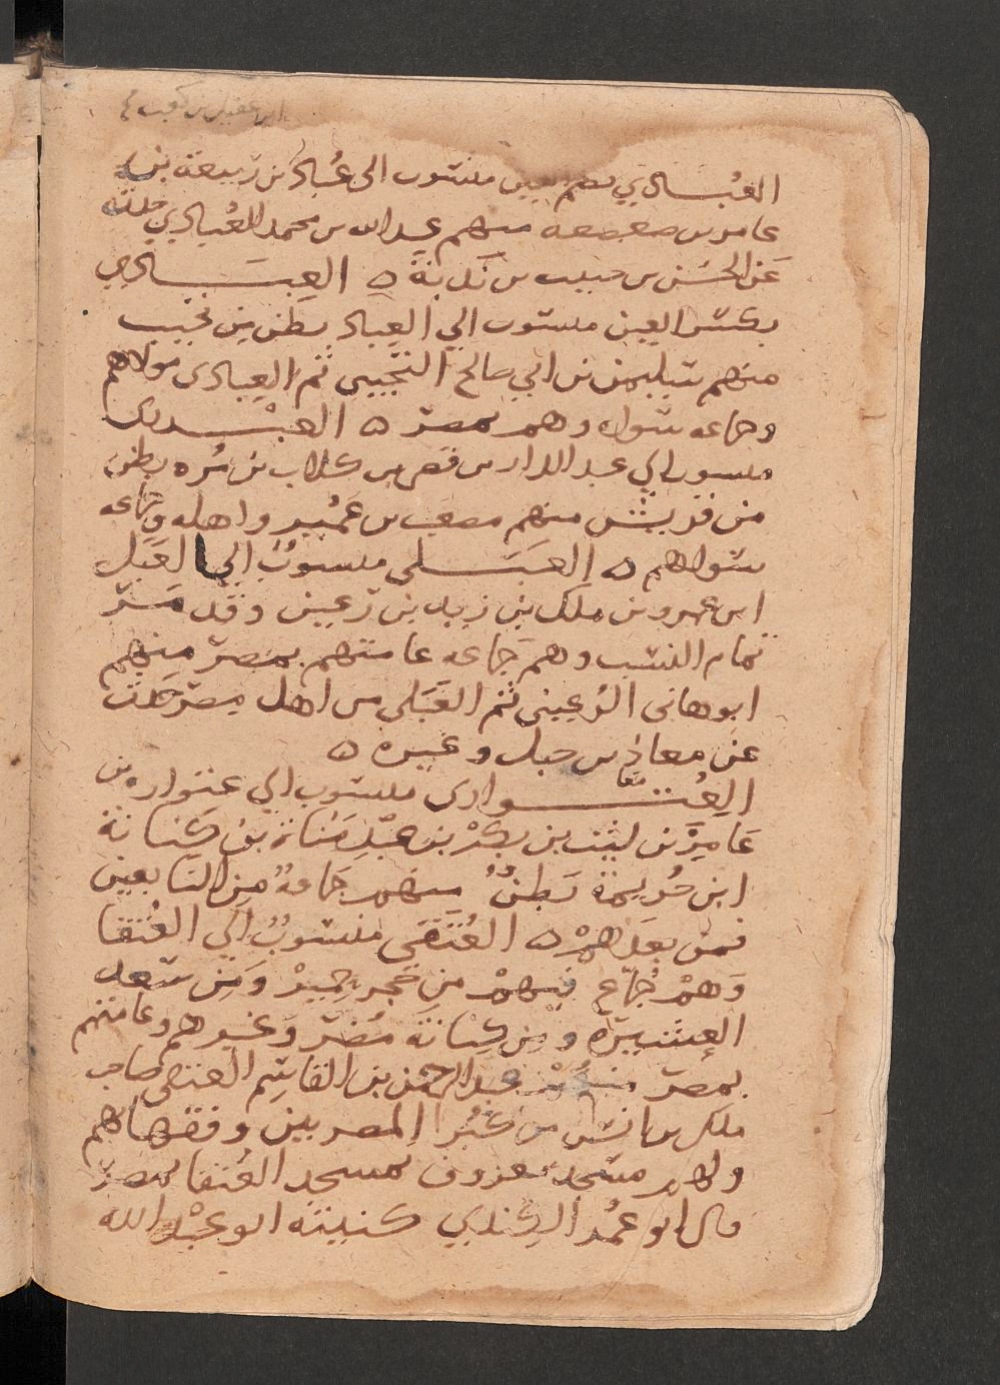 ابن عقيل بن كعب
العُبَادي بضم العين منسوب الى عُبادة بن ربيعة بن
عامر بن صعصعه منهم عبد الله بن محمد العُبادي حدث
عَن الحسَن بن حبيب بن نَدبَةَ ه العِبَادي
بكسر العين منسوب الي العِباد بطن مِن تُجيب
منهم سليمن بن ابي صالح التجيبي ثم العِبادى مولاهم
وجماعه سواه وهم بمصر ه العَبْدري
منسوب الي عبد الدار بن قصي بن كلاب بن مُره بطن
من قريش منهم مصعب بن عُمَيرٍ واهله وجماعه
سواهم ه العَبَلى منسوبٌ الي العَبَل
ابن عمرو بن ملك بن زيد بن رُعين وقد مَر
تمام النسب وهم جَماعه عامتهم بمصر منهم
ابو هانى الرُعيني ثم العَبَلى من اهل مصر حدث
عن معاذ بن جبل وغيره ه
العُِتْوارى معا منسوب الي عتواره بن
عَامِرِ بن ليث بن بكْر بن عَبْدِ مَنَاة بن كِنَانَة
ابن خُزيمة بَطنٌ منهم جَماعةٌ مِن التابعين
فمن بعدهمْ ه العُتَقي منسوبٌ الي العُتَقا
وَهمْ جُمّاع فيهمْ مِن حَجر حِمْيرْ ومن سعد
العشيرَه ومن كِنَانَة مُضَر وَغيرهم وعامتهم
بمصر منهُمْ عبد الرحمن بن القاسم العتقي صاحب
ملك بن انس من كُبُرا المصريين وفقهاهم
ولهم مسجد معروف بمسجد العُتقا بمصر
قال ابو عُمَر الكِندي كنيته ابو عبْد الله